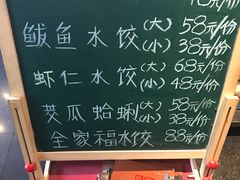 鲅鱼水饺(大)58元/份
(小)38元/份
虾仁水饺(大)68元/份
(小)48元/份
茭瓜蛤蜊(大)58元/份
(小)38元/份
全家福水饺 88元/份